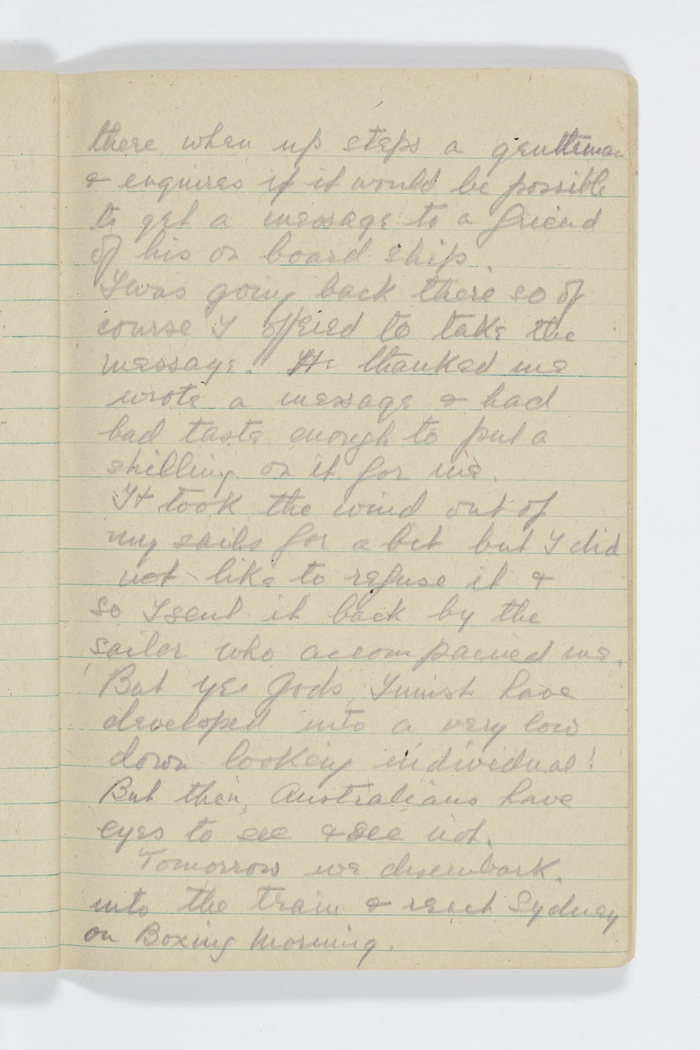 there when up steps a gentleman
& enquires if it would be possible
to get a message to a friend
of his on board ship.
I was going back there so of
course I offered to take the
message. He thanked me
wrote a message & had
bad taste enough to put a
shilling on it for me.
It took the wind out of
my sails for a bit but I did
not like to refuse it &
so I sent it back by the
sailor who accompanied me.
But ye Gods, I must have
developed into a very low
down looking individual!
But then, Australians have
eyes to see & see not.
Tomorrow we disembark
into the train & reach Sydney
on Boxing Morning.